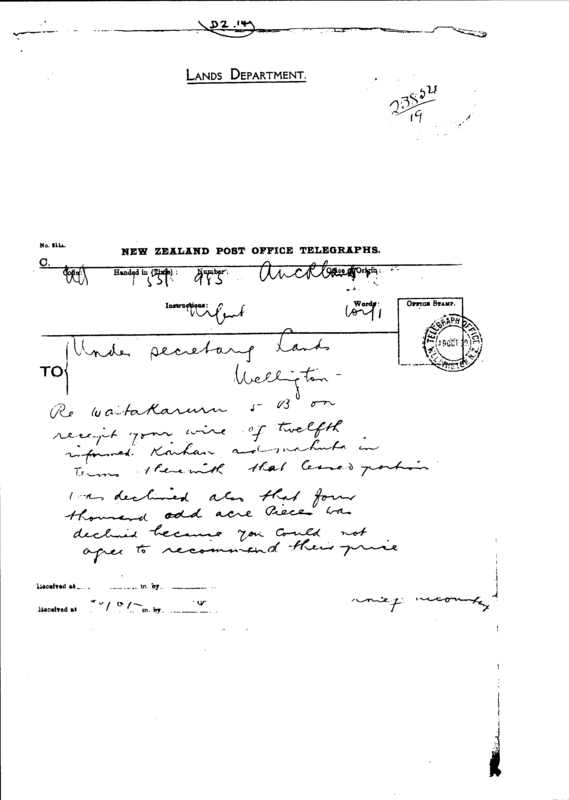 DZ.144
LANDS DEPARTMENT.
23854
19
No. 211A.
NEW ZEALAND POST OFFICE TELEGRAPHS.
C.
Code: Handed in (Time): Number: Office of Origin:
1 55 983 Auckland
Instructions: Words:
Urgent
OFFICE STAMP.
TELEGRAPH OFFICE
OCT
N.Z.
TO
Under secretary Lands
Wellington -
Re Waitakaruru 5 B on
receipt your wire of twelfth
informed and in
terms therewith that leased portion
was declined also that four
thousand odd acre Pieces was
declined because you could not
agree to recommend their price
Received at m. by
Received at m. by